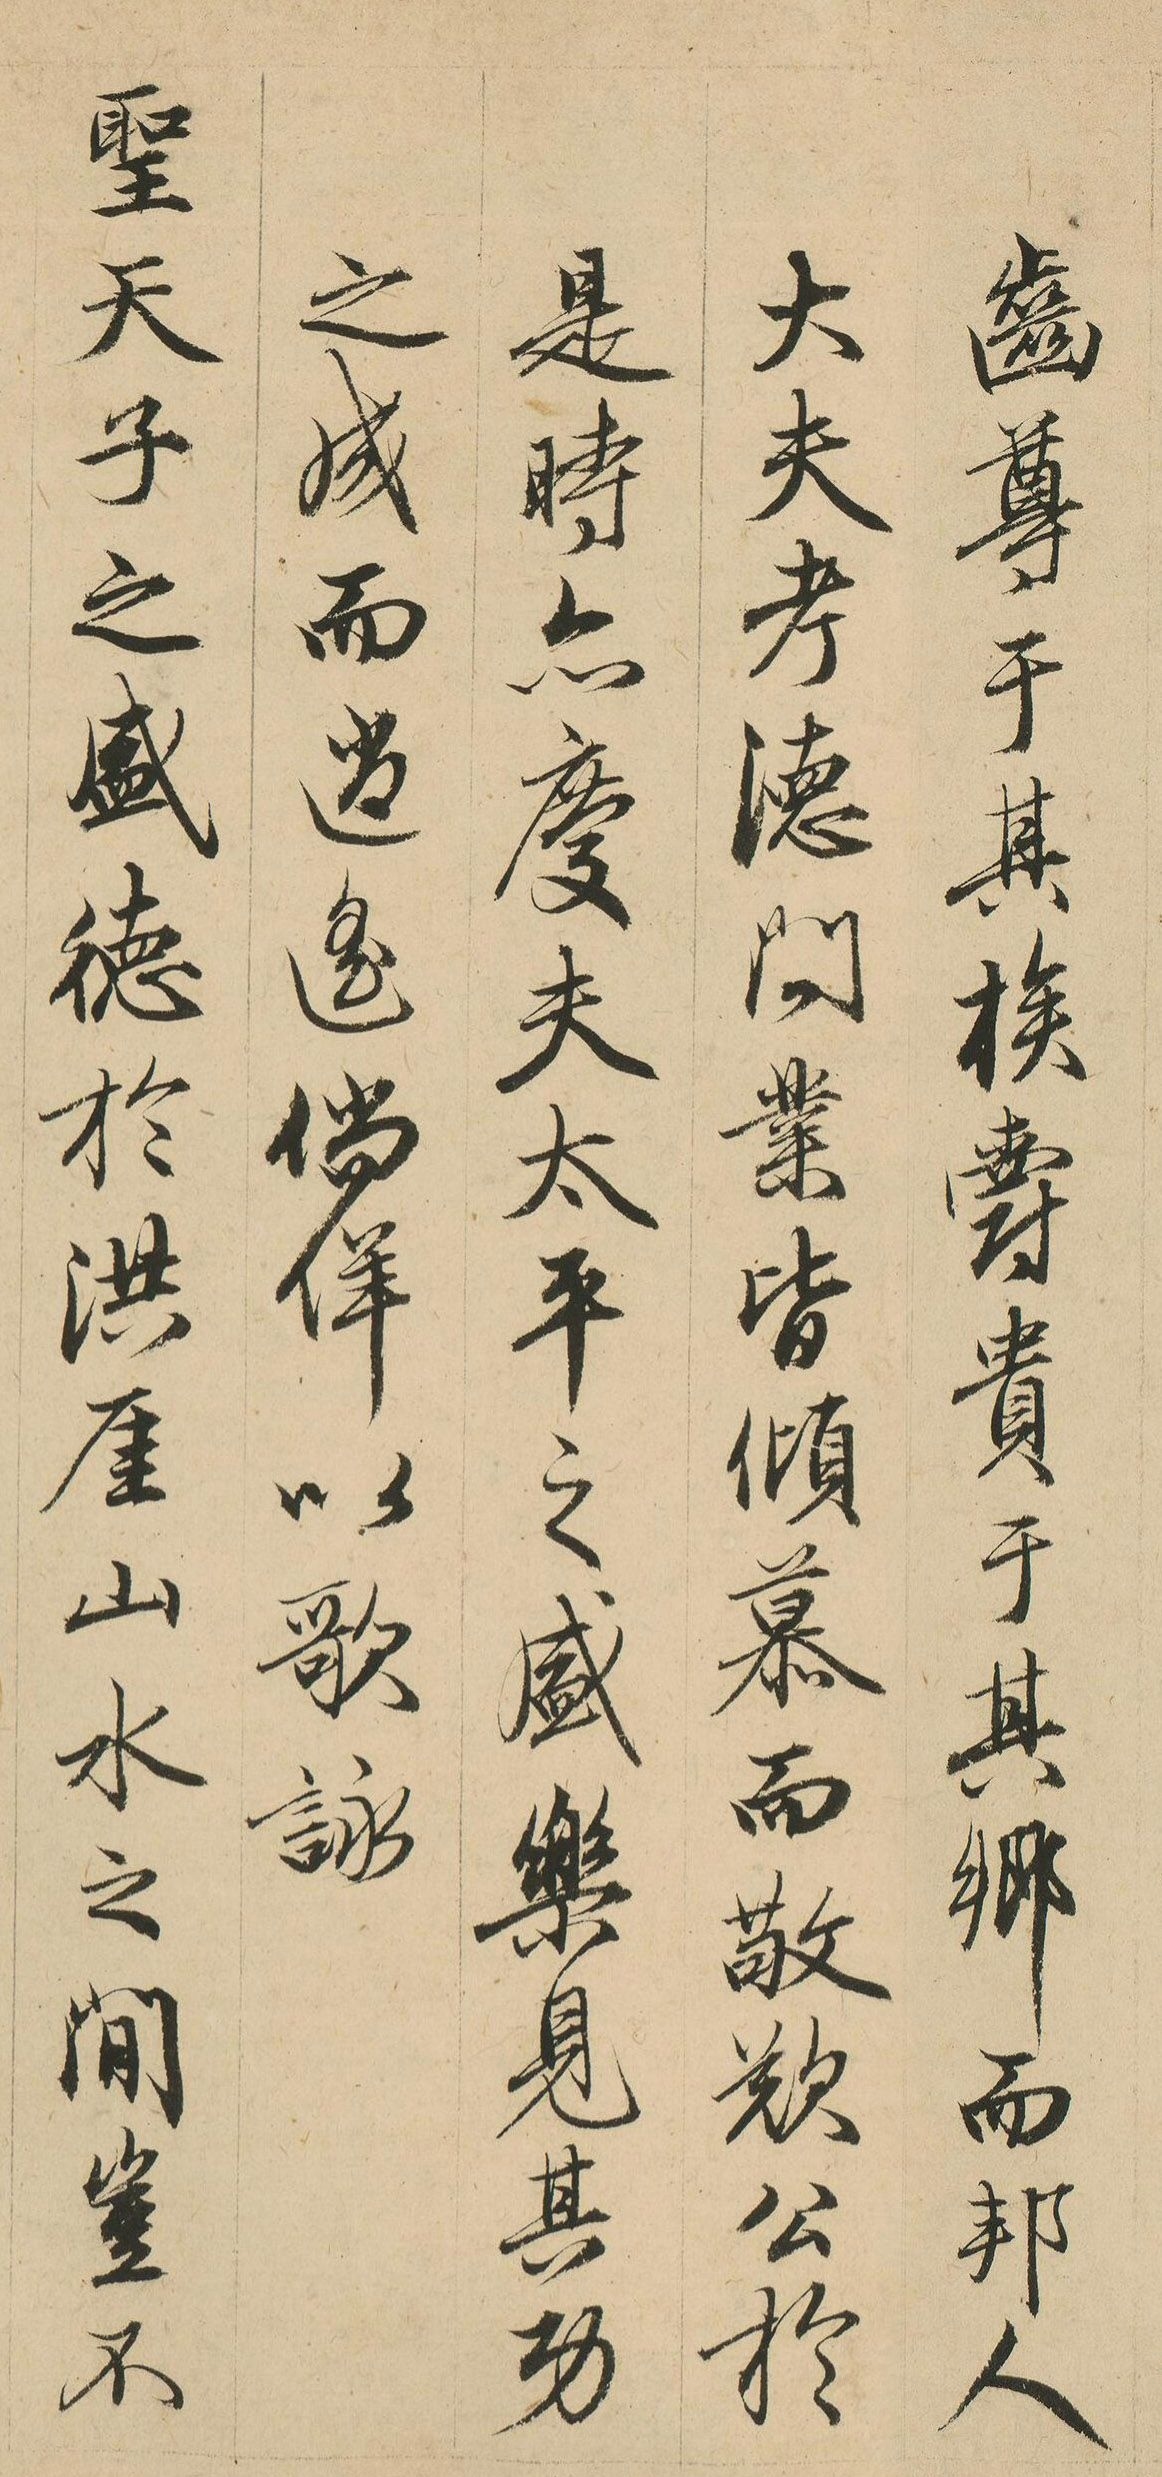 齒尊于其族爵貴于其鄉而邦人
大夫考德問業皆傾慕而敬歎公於
是時亦慶夫太平之盛樂見其功
之成而逍遙倘佯以歌詠
聖天子之盛德於洪厓山水之間豈不